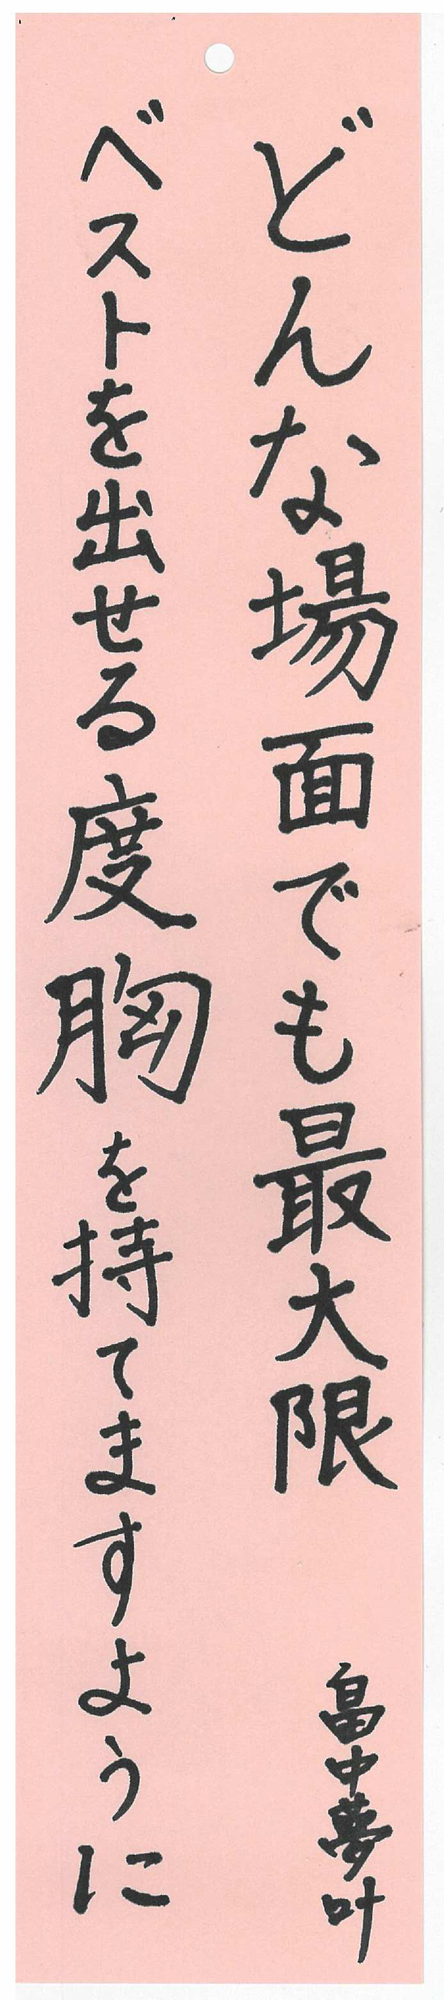 どんな場面でも最大限
ベストを出せる度胸を持てますように
畠中夢叶